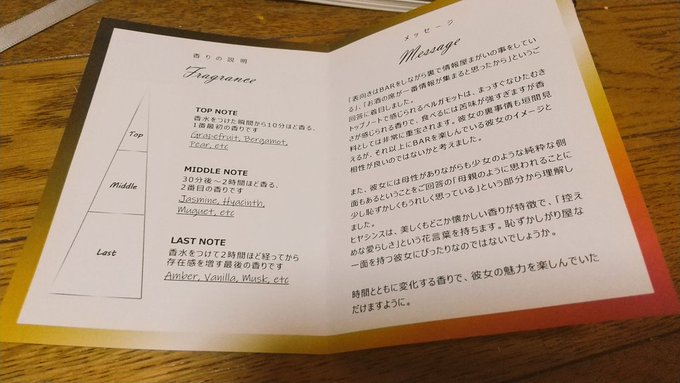 香りの説明
Fragrance
Top
Middle
Last
TOP NOTE
香水をつけた瞬間から10分ほど香る、
1番最初の香りです
Grapefruit, Bergamot,
Pear, etc
MIDDLE NOTE
30分後～2時間ほど香る、
2番目の香りです
Jasmine, Hyacinth,
Muguet, etc
LAST NOTE
香水をつけて2時間ほど経ってから
存在感を増す最後の香りです
Amber, Vanilla, Musk, etc
メッセージ
Message
「表向きはBARをしながら裏で情報屋まがいの事をしてい
る」、「お酒の席が一番情報が集まると思ったから」というご
回答に着目しました。
トップノートで感じられるベルガモットは、まっすぐなひたむき
さが感じられる香りで、食べるには苦味が強すぎますが香
料としては非常に重宝されます。彼女の裏事情も垣間見
えるが、それ以上にBARを楽しんでいる彼女のイメージと
相性が良いのではないかと考えました。
また、彼女には母性がありながらも少女のような純粋な側
面もあるということをご回答の「母親のように思われることに
少し恥ずかしくもうれしく思っている」という部分から理解し
ました。
ヒヤシンスは、美しくもどこか懐かしい香りが特徴で、「控え
めな愛らしさ」という花言葉を持ちます。恥ずかしがり屋な
一面を持つ彼女にぴったりなのではないでしょうか。
時間とともに変化する香りで、彼女の魅力を楽しんでいた
だけますように。